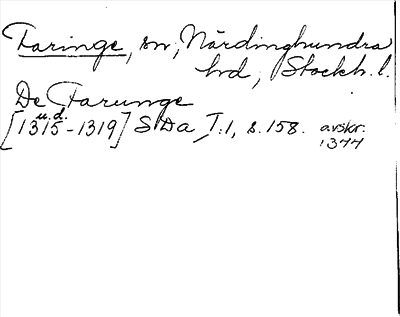 Faringe, sn, Närdinghundra
hd, Stockh. l.
De Farunge
u. d.
[1315-1319] SDa, T. 1, s. 158. avskr.
1344